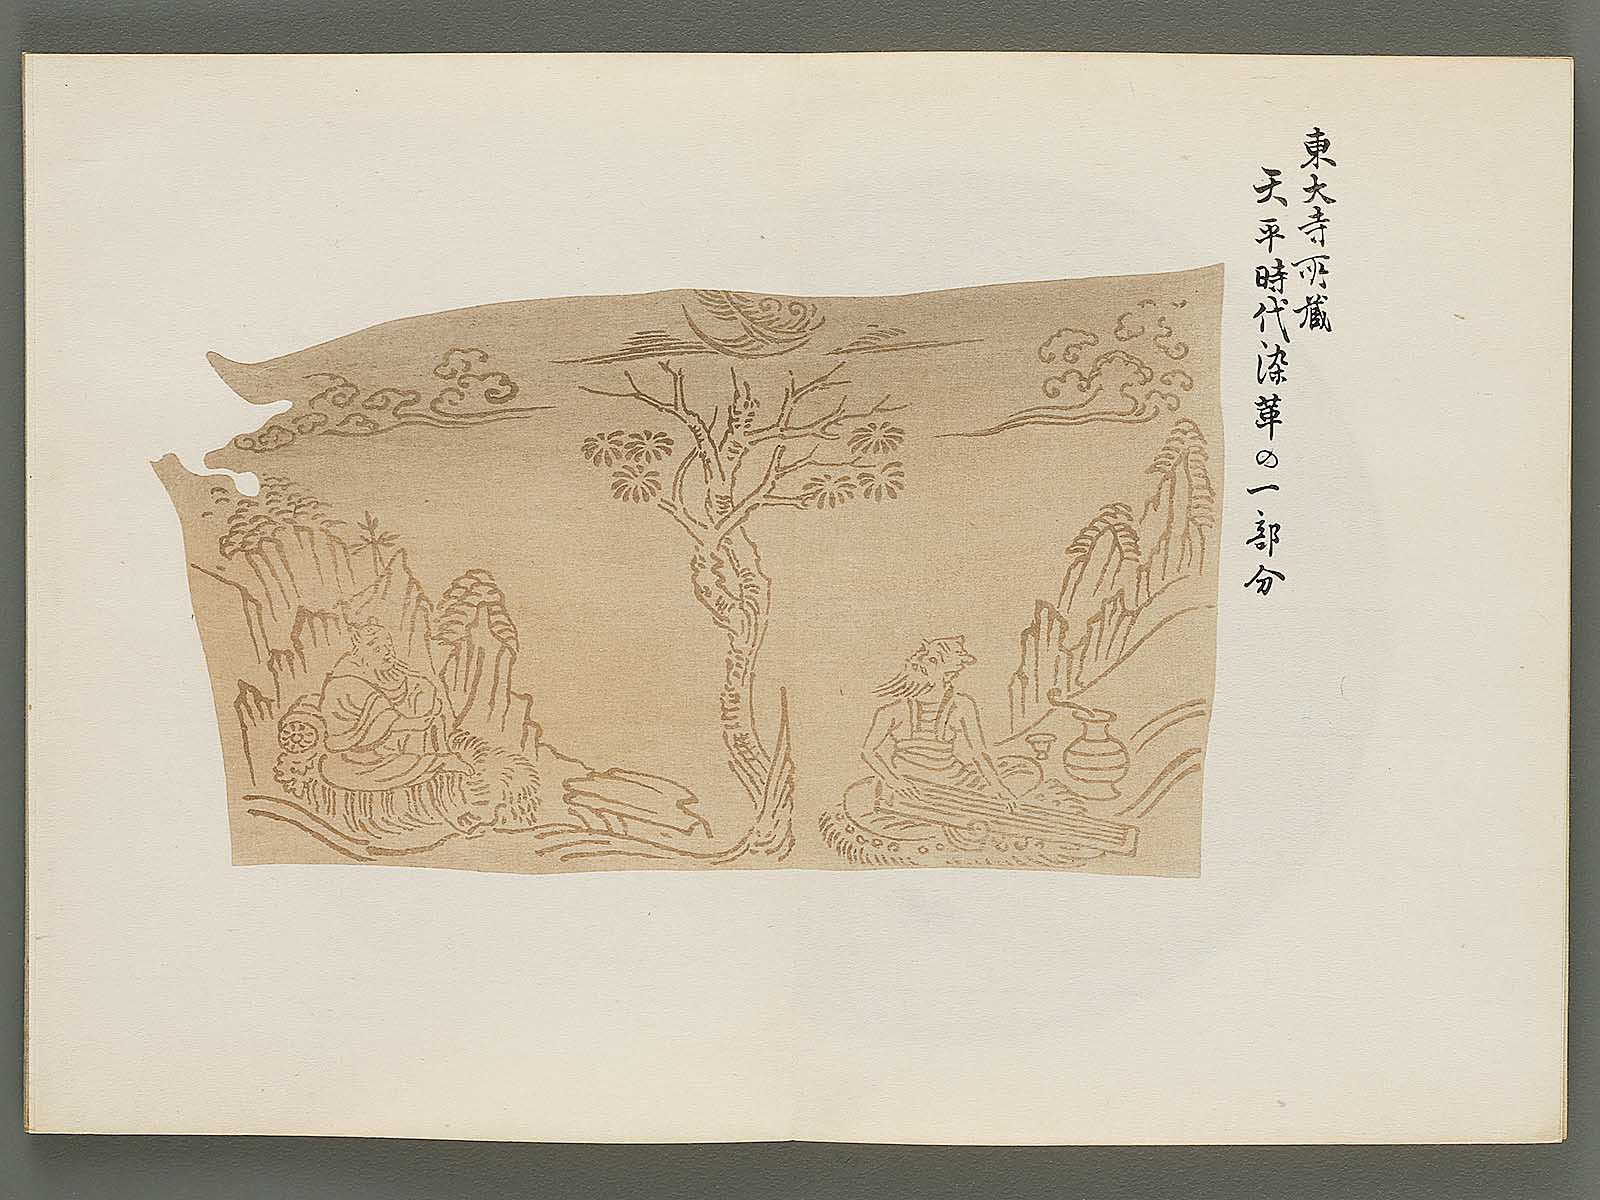 東大寺所蔵
天平時代染革の一部分